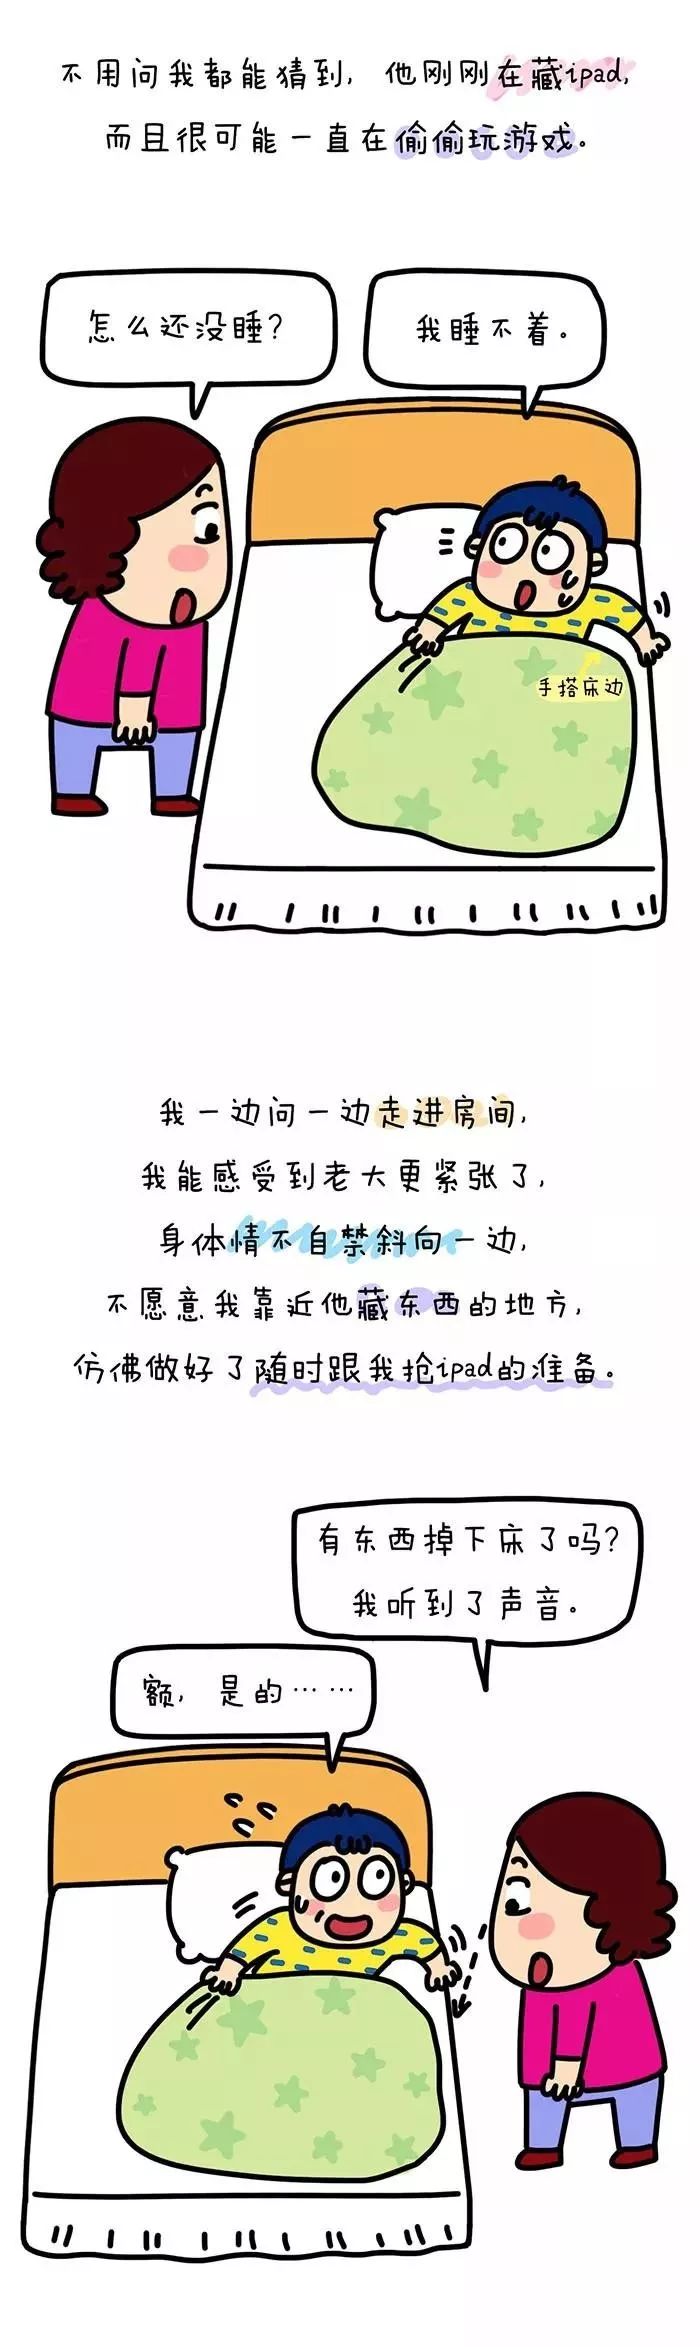 不用问我都能猜到，他刚刚在藏ipad，
而且很可能一直在偷偷玩游戏。
怎么还没睡？
我睡不着。
手搭床边
我一边问一边走进房间，
我能感受到老大更紧张了，
身体情不自禁斜向一边，
不愿意我靠近他藏东西的地方，
仿佛做好了随时跟我抢ipad的准备。
有东西掉下床了吗？
我听到了声音。
额，是的……